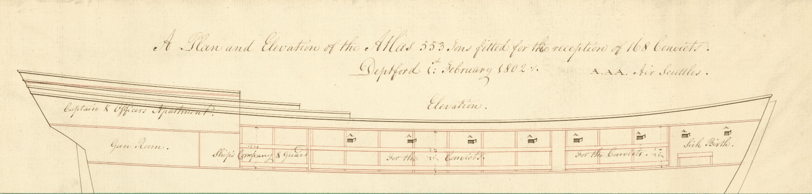 A Plan and Elevation of the Atlas 553 Tons fitted for the reception of 168 Convicts.
Deptford February 1802.
A.A.A. Air Scuttles.
Elevation.
Captain & Officers Apartment.
Gun Room.
Ship's Company & Guard
For the Convicts.
For the Convicts
Sick Birth.